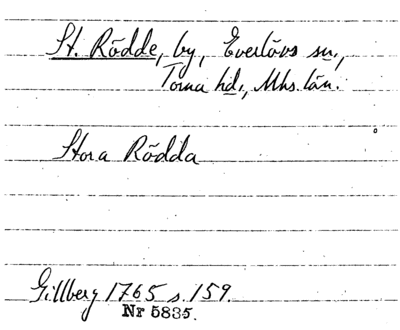 St. Rödde, by, Everlövs sn.,
Torna hd., Mhs. län.
Stora Rödda
Gillberg 1765 s. 159.
Nr 5835.